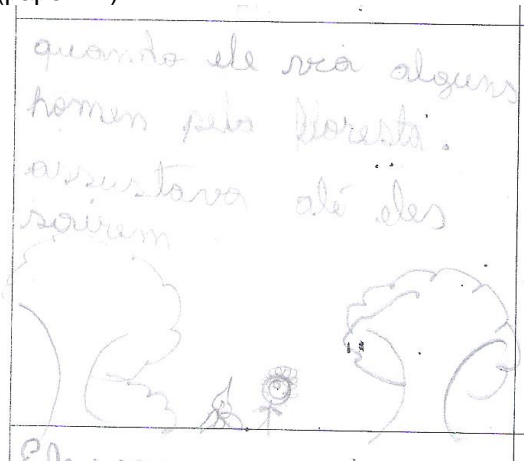 quando ele via alguns
homen pela floresta.
assustava até eles
sairem